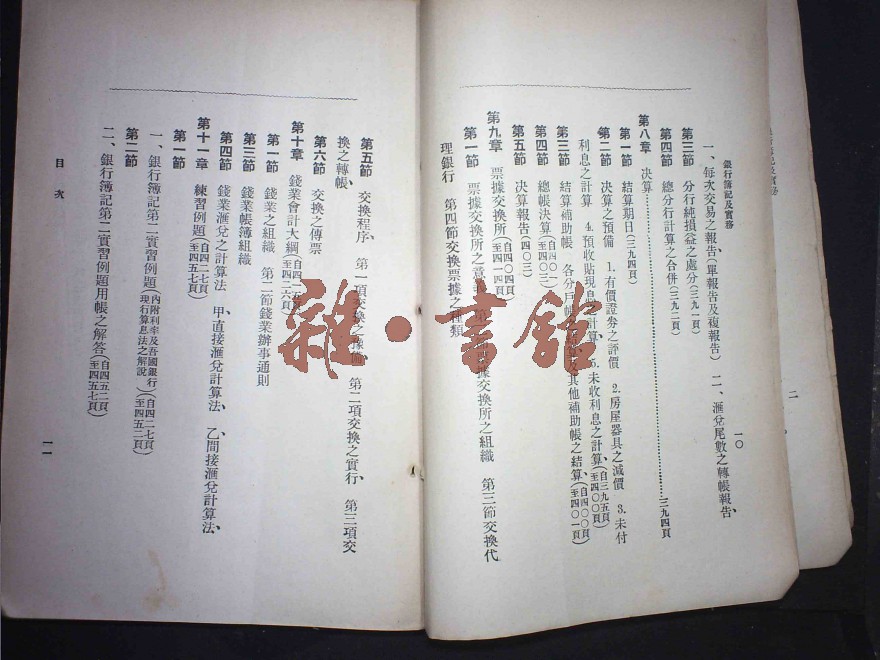 銀行簿記及實務
一〇
一、每次交易之報告(單報告及複報告) 二、滙兌尾數之轉帳報告、
第三節 分行純損益之處分(三九一頁)
第四節 總分行計算之合併(三九二頁)
第八章 決算……三九四頁
第一節 結算期日(三九四頁)
第二節 決算之預備 1.有價證券之評價 2.房屋器具之減價 3.未付
利息之計算 4.預收貼現息之計算、5.未收利息之計算(自三九五頁至四〇〇頁)
第三節 結算補助帳 各分戶帳 及其他補助帳之結算(自四〇〇頁至四〇一頁)
第四節 總帳決算(自四〇一至四〇三)
第五節 決算報告(四〇三)
第九章 票據交換所(自四〇四頁至四一四頁)
第一節 票據交換所之意義 第二節票據交換所之組織 第三節交換代
理銀行 第四節交換票據之種類
第五節 交換程序、第一項交換之預備、第二項交換之實行、第三項交
換之轉帳、
第六節 交換之傳票
第十章 錢業會計大綱(自四一五頁至四二六頁)
第一節 錢業之組織 第二節錢業辦事通則
第三節 錢業帳簿組織
第四節 錢業滙兌之計算法 甲、直接滙兌計算法、 乙、間接滙兌計算法、
第十一章 練習例題(自四二七頁至四五七頁)
第一節
一、銀行簿記第二實習例題(內附利率及吾國銀行現行算息法之解說)(自四二七頁至四五二頁)
第二節
二、銀行簿記第二實習例題用帳之解答(自四五二頁至四五七頁)
目次
一一
二
雜·書館